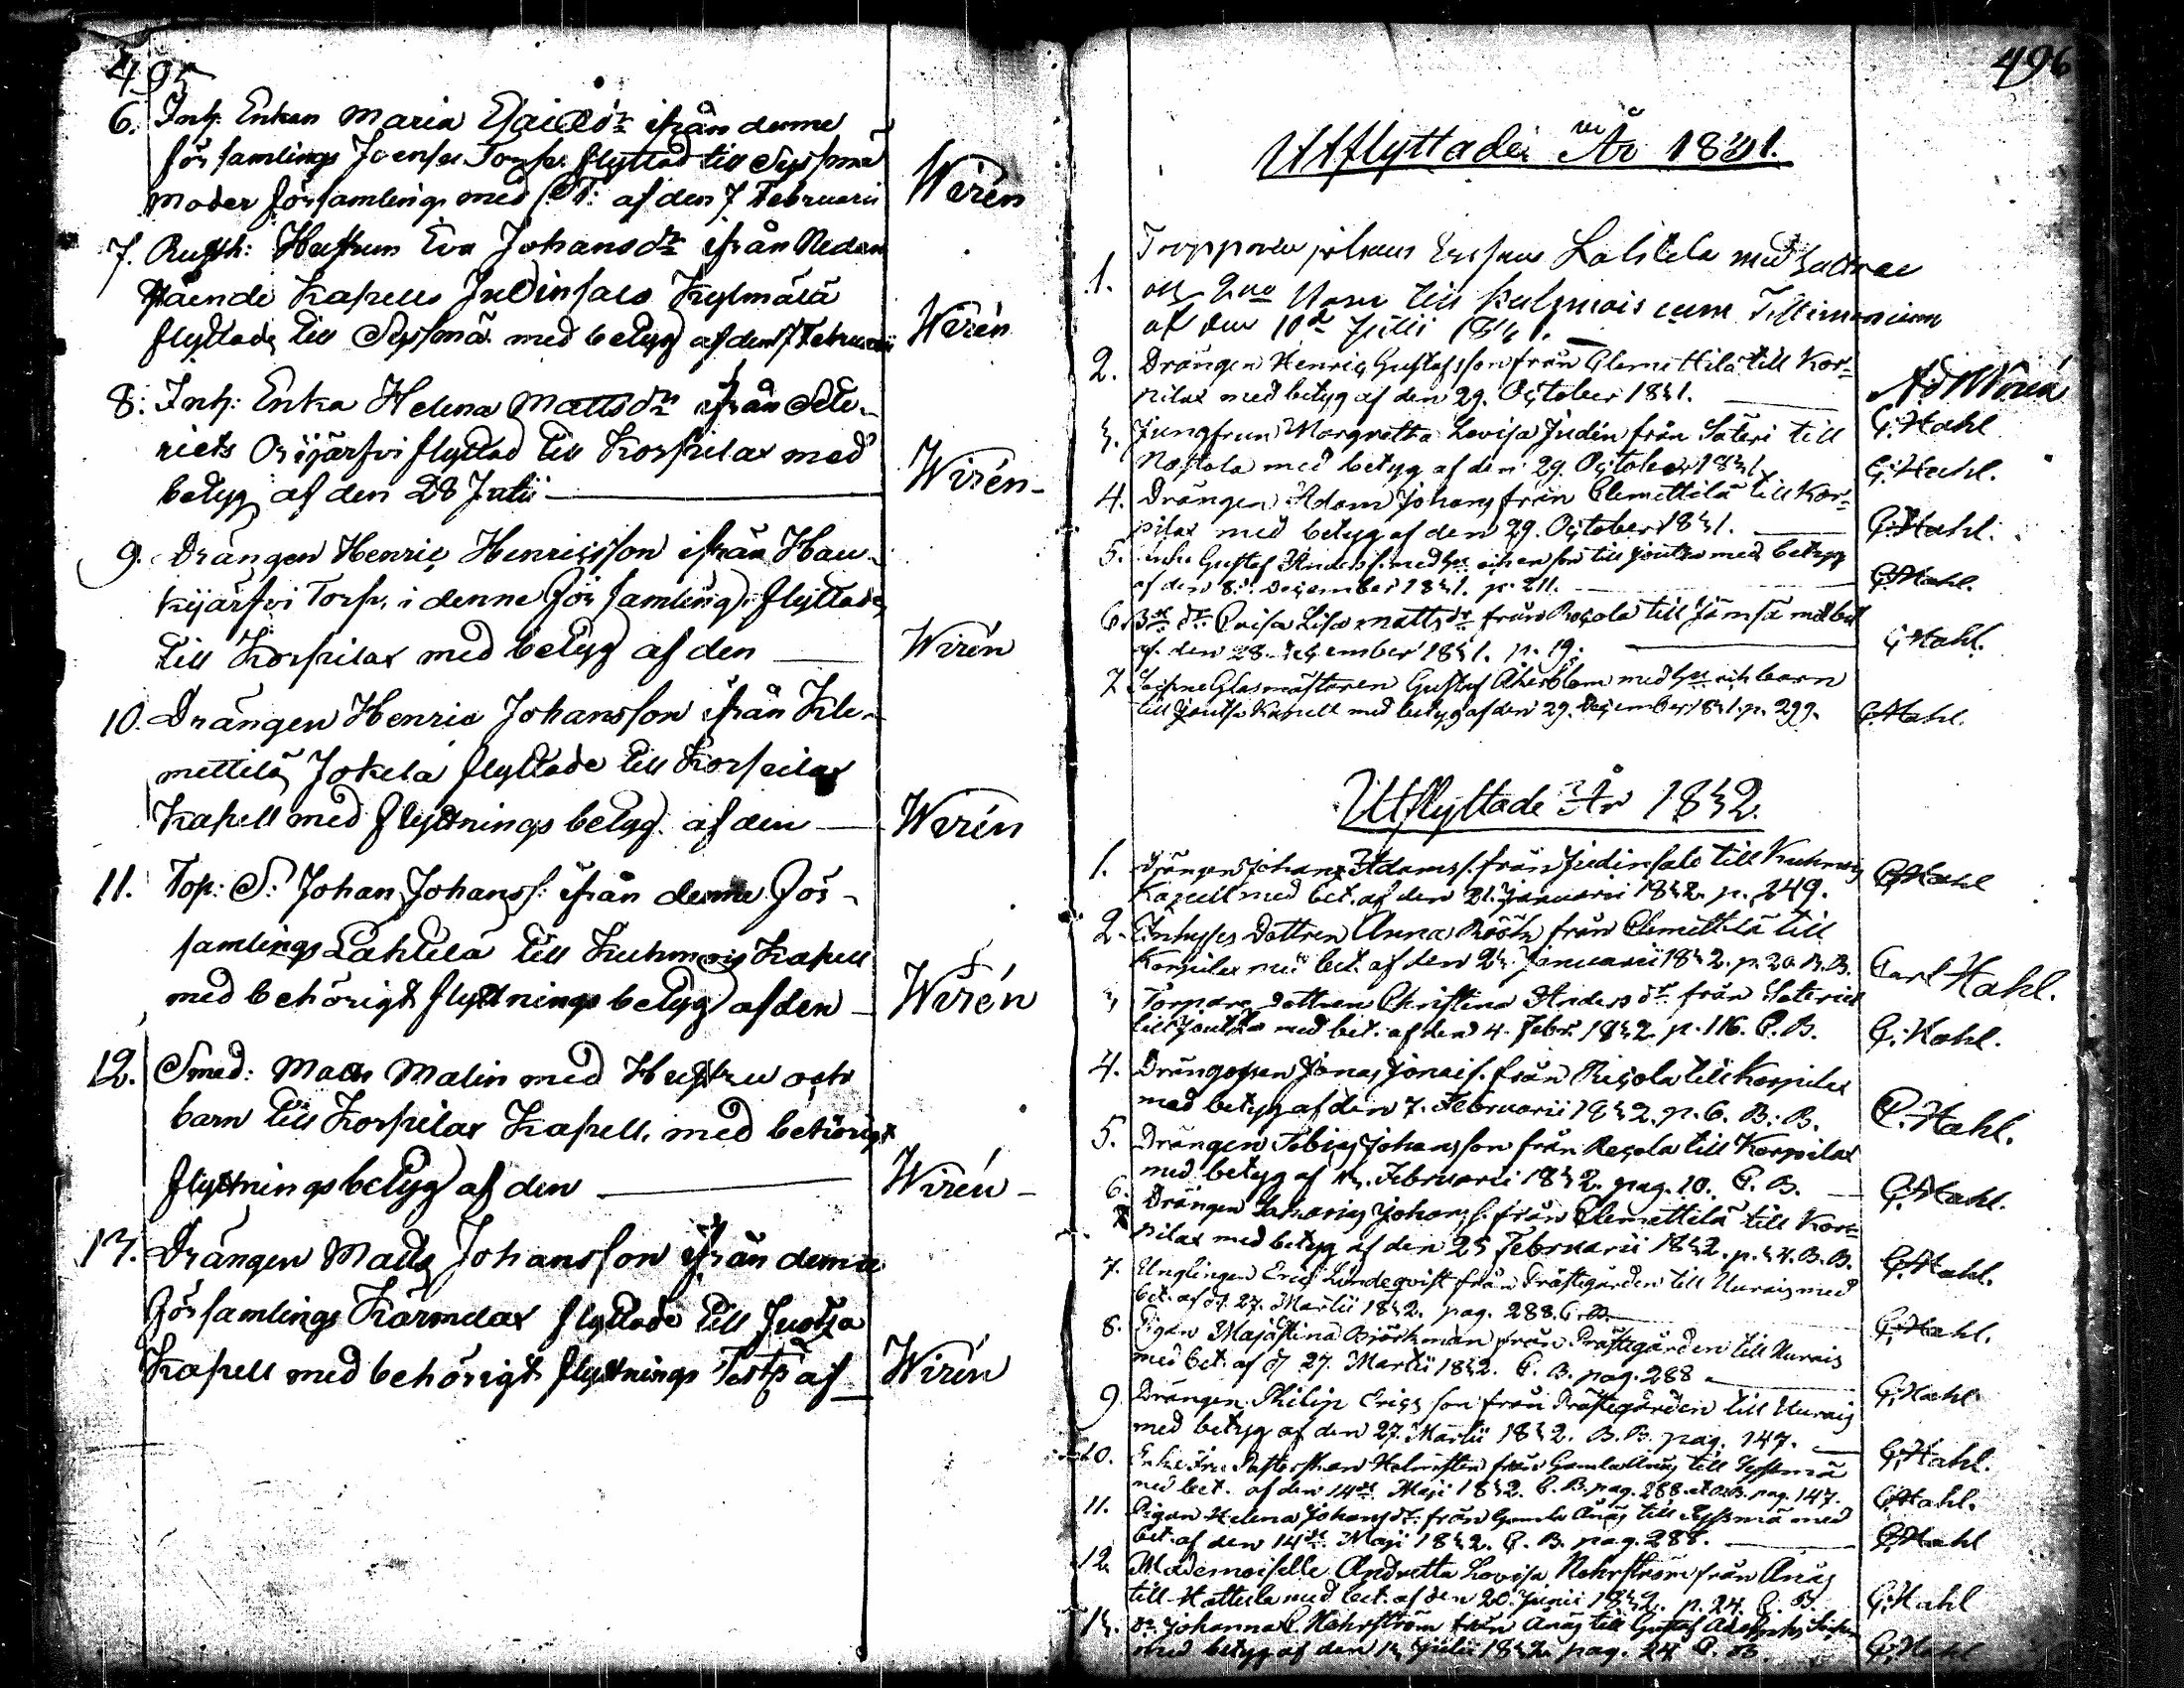 495
6. Inh. Enkan Maria Esaiædr ifrån denne
församlings Joensu Torp. flyttad till Sysmä
Moder församling med T. af den 7 Februarii
Wirén
7. Hustrun Eva Johansdr ifrån Nedan
stående Kapells Judinsalo Kylmälä
flyttade till Sysmä med betyg af den 7 Februarii
Wirén
8. Inh: Enka Helena Mattsdr ifrån Säte-
riets flyttad till Korpilax med
betyg af den 28 Julii
Wirén
9. Drängen Henric Henricsson ifrån Hau-
kijärfvi Torp. i denne Församling, flyttade
till Korpilax med betyg af den
Wirén
10. Drängen Henric Johansson ifrån Kle-
mettilä Jokela flyttade till Korpilax
Kapell med flyttnings betyg af den
Wirén
11. Top: S: Johan Johanss: ifrån denne För-
samlings Lahtila till Kuhmois Kapell
med behörigt flyttnings betyg af den
Wirén
12. Smed: Matts Malin med Hustru och
barn till Korpilax Kapell. med behörigt
flyttningsbetyg af den
Wirén
13. Drängen Matts Johansson ifrån denne
Församlings Kärmelax flyttade till Jootsa
Kapell med behörigt flyttnings Test: af
Wirén
496
Utflyttade År 1831.
1. Johans Lahtela med hustru
och till Kuhmois cum Testimonium
af den 10de Julii
2. Drängen Henric Gustafsson från Clemettilä till Kor=
pilax med betyg af den 29. October 1831.
G. Hahl
3. Jungfrun Margretha Lovisa Judén från Säteri till
Nastola med betyg af den 29. October 1831
G. Hahl.
4. Drängen Adam Johans från Clemettilä till Kor=
pilax med betyg af den 29. October 1831.
C. Hahl.
5. Gustaf Anderss. med hu och en son till Joutsa med betyg
af den 8. December 1831. p. 211.
C. Hahl.
6. Caisa Lisa Mattsdr från Recola till Jämsä med bet
af den 28. December 1831. p. 19.
C. Hahl.
7. Sockne Glasmästaren Gustaf Åkerblom med hu och barn
till Joutsa Kapell med betyg af den 29. December 1831. p. 299.
C. Hahl.
Utflyttade År 1832.
1. Drängen Johan Adamss. från Judinsalo till Kuhmois
Kapell med bet. af den 21. Januarii 1832. p. 249.
C. Hahl
2. Inhyses Dottren Anna från Clemettilä till
Korpilax med bet. af den Januarii 1832. p. 20. B.B.
Carl Hahl.
3. Torpare Dottren Christina Andersdr från Säteriet
till Joutsa med bet. af den 4. Febr. 1832. p. 116. C. B.
C. Hahl.
4. Drängossen Jonas Jonæs. från Recola till Korpilax
med betyg af den 7. Februarii 1832. p. 6. B. B.
C. Hahl.
5. Drängen Tobias Johansson från Recola till Korpilax
med betyg af Februarii 1832. pag. 10. C. B.
C. Hahl.
6. Drängen Zacharias Johanss. från Clemettilä till Kor=
pilax med betyg af den 25 Februarii 1832. p. B. B.
C. Hahl.
7. Ynglingen Eric Lindeqvist från Prästegården till Urais med
bet. af d. 27. Martii 1832. pag. 288. C. B.
C. Hahl.
8. Pigan Majastina Björkman från Prästegården till Urais
med bet. af d 27. Martii 1832. C. B. pag. 288
C. Hahl
9. Drängen Philip Ericsson från Prästegården till Urais
med betyg af den 27. Martii 1832. B. B. pag. 147.
C. Hahl.
10. Enke Fru Holmsten från Gamla Anäs till Sysmä
med bet. af den 14de Maji 1832. C. B. pag. 288. pag. 147.
C. Hahl.
11. Pigan Helena Johansdr. från Gamla Anäs till Sysmä med
bet. af den 14de Maji 1832. C. B. pag. 288.
C. Hahl
12. Mademoiselle Andretta Lovisa Nohrström från Anäs
till Hattula med bet. af den 20. Junii 1832. p. 24. C. B.
C. Hahl
13. Johanna C. Nohrström från Anäs till Gustaf Adolphs
med betyg af den Julii 1832. pag. 24 C. B.
C. Hahl